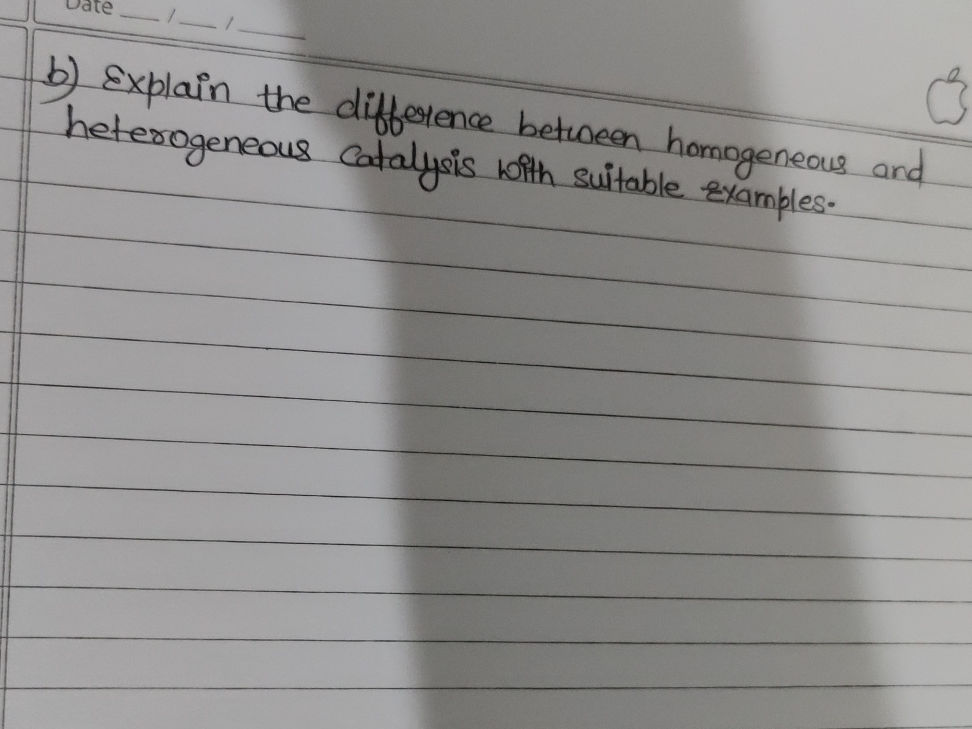 Date __/__/____
b) Explain the difference between homogeneous and
heterogeneous catalysis with suitable examples.